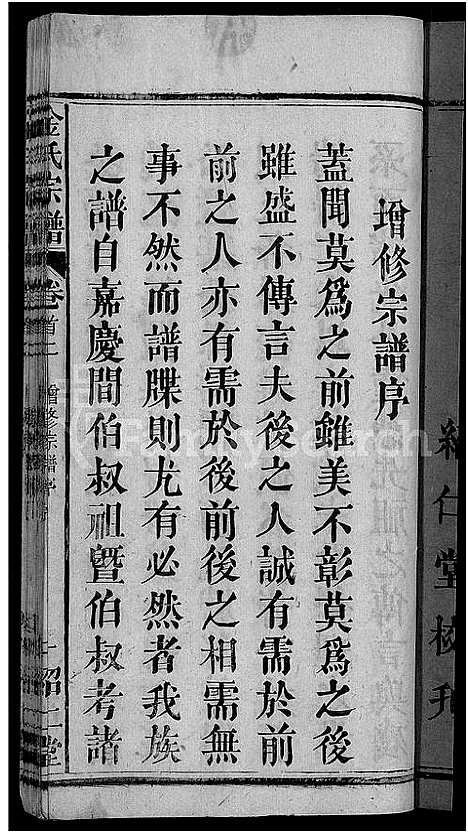 增修宗譜序
蓋聞莫爲之前雖美不彰莫爲之後
雖盛不傳言夫後之人誠有需於前
前之人亦有需於後前後之相需無
事不然而譜牒則尤有必然者我族
之譜自嘉慶間伯叔祖暨伯叔考諸
金氏宗譜
卷首二
增修宗譜序
FamilySearch